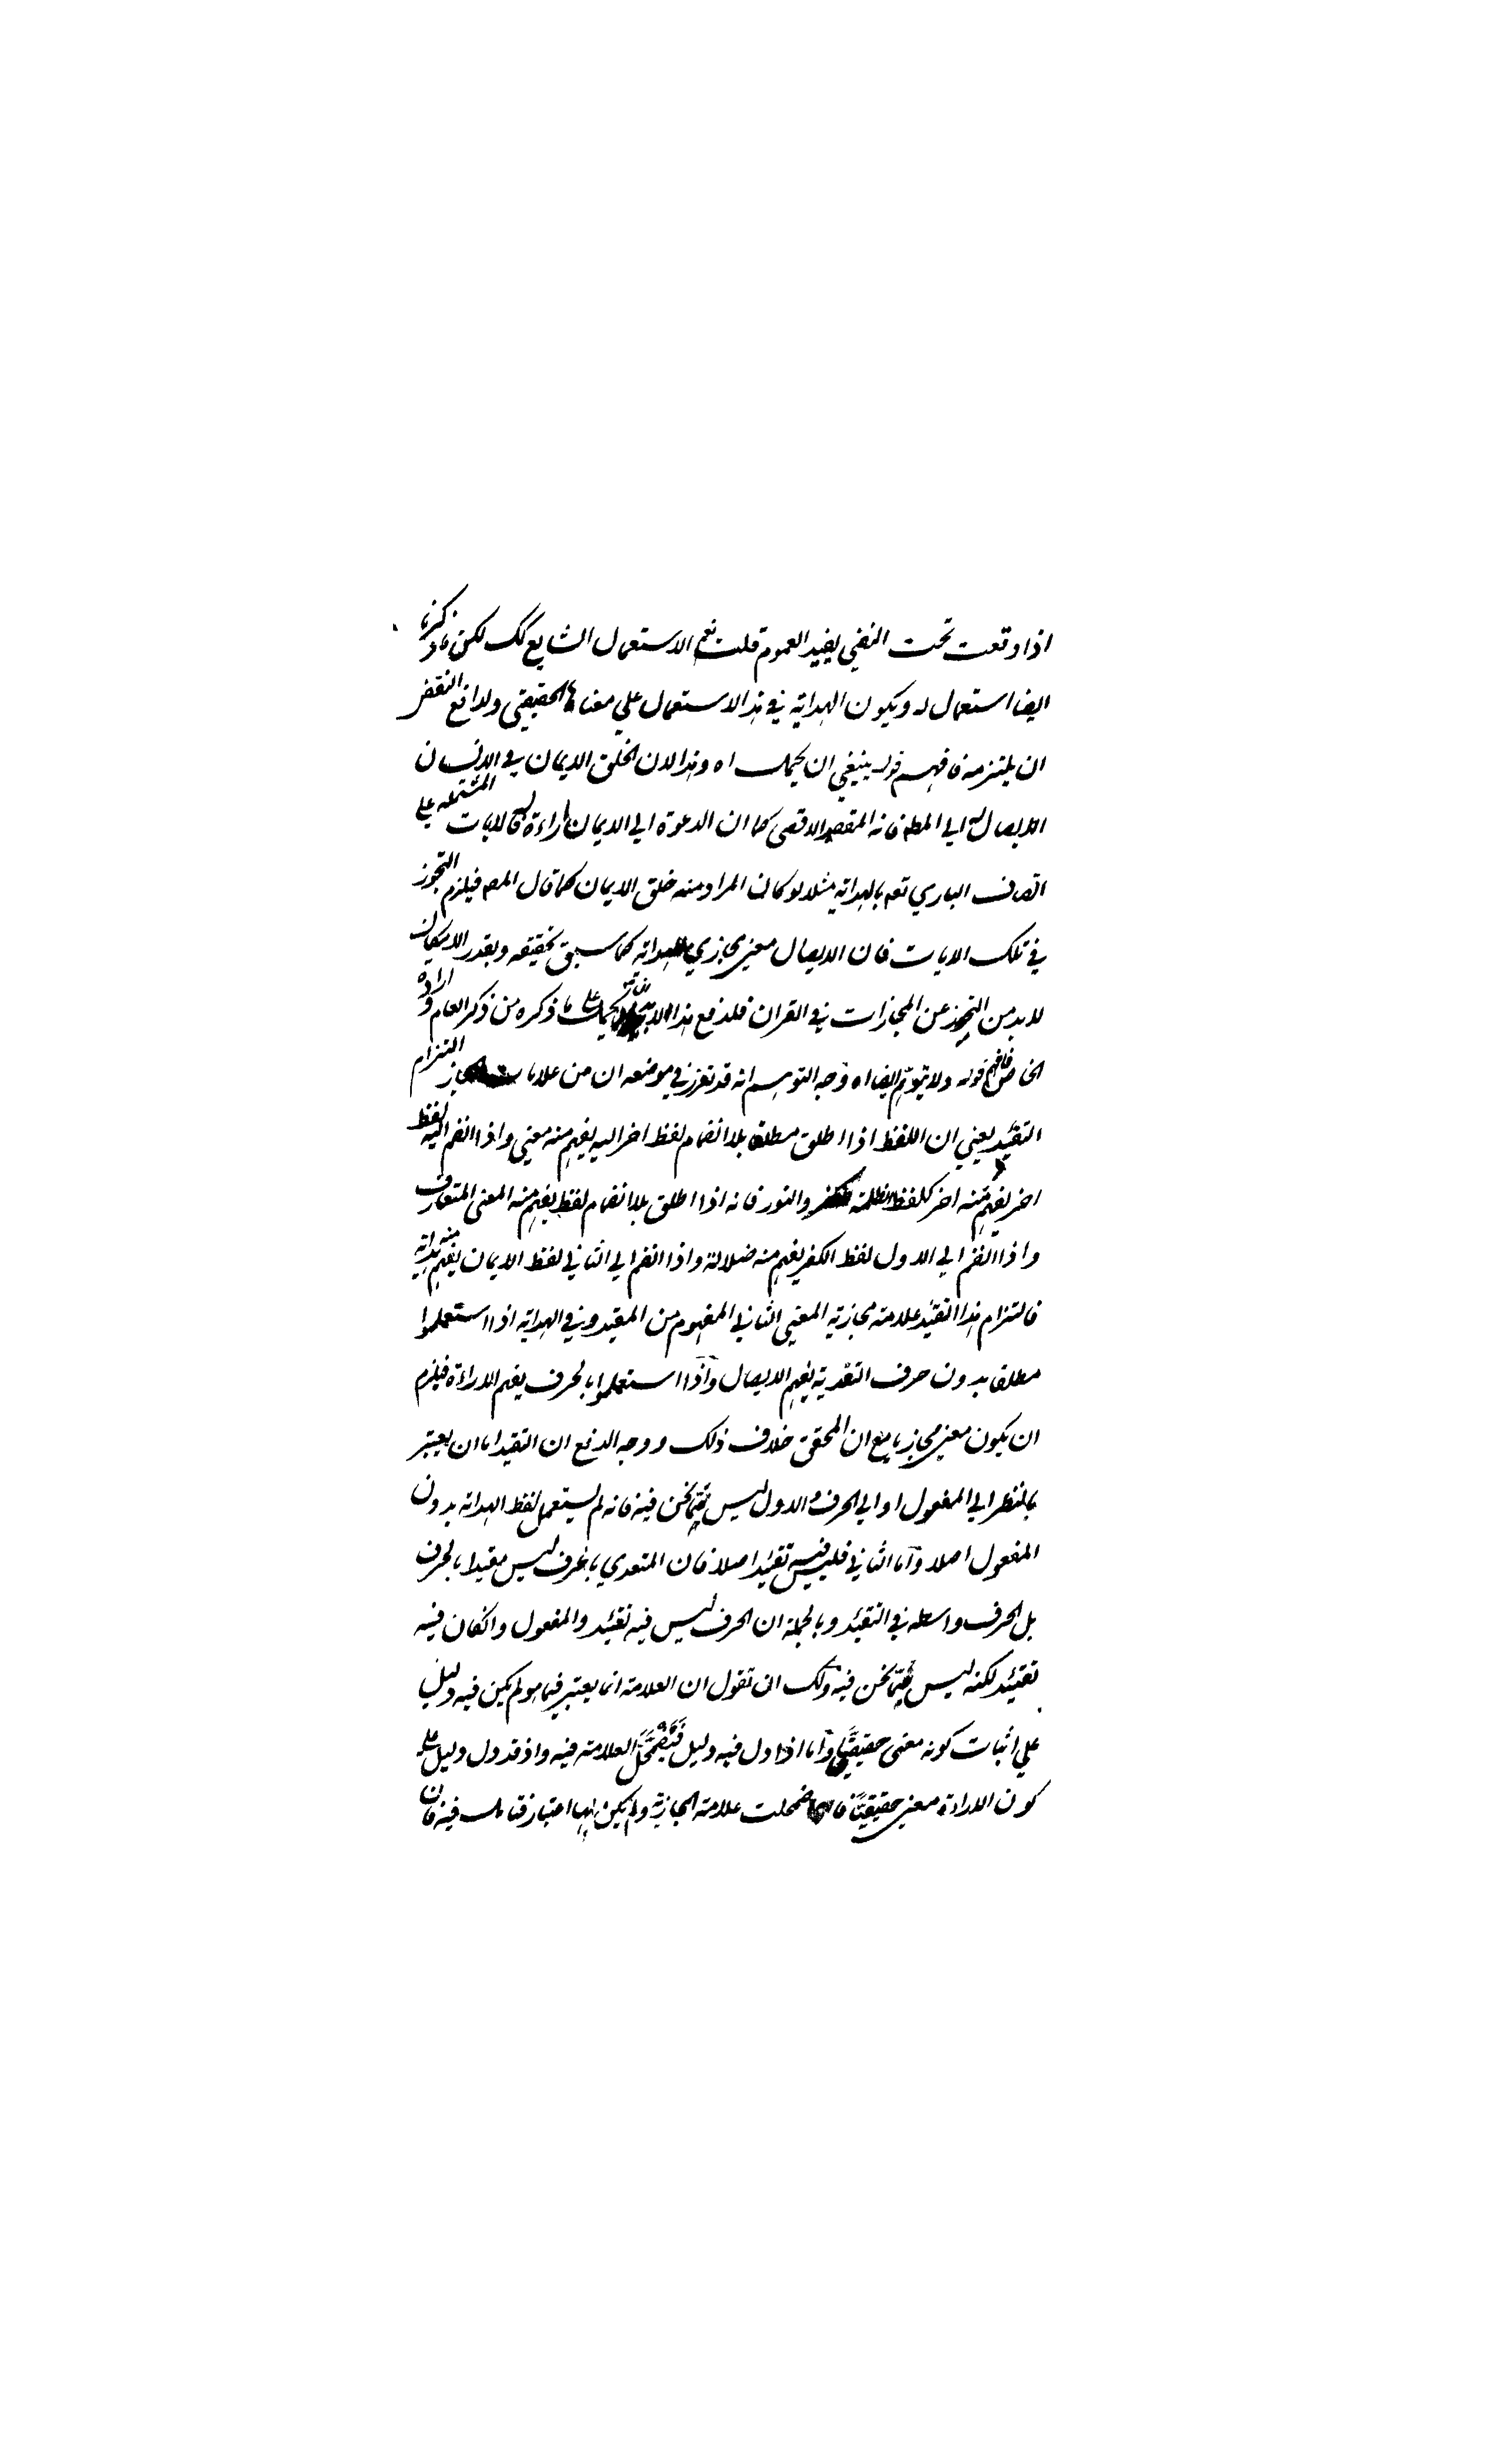 اذا وقعت تحت النفي يفيد العموم قلت نعم الاستعمال الشايع كك لكن ما ذكرنا
ايضا استعمال له ويكون الهداية في هذا الاستعمال علي معناها الحقيقي ولدافع النقض
ان يلتزمه فافهم قوله ينبغي ان يحمل اه وهذا لان خلق الايمان في الانسان
الايصال له الي المط فانه المقصد الاقصي كما ان الدعوة الي الايمان اراءة له للايات المشتملة علي
اتصاف الباري تعم بالهداية مثلا لو كان المراد منه خلق الايمان كما قال المص فيلزم التجوز
في تلك الايات فان الايصال معني مجازي للهداية كما سبق تحقيقه وبقدر الامكان
لابد من التحرز عن المجازات في القران فلدفع هذا لابد ان يحمل علي ما ذكره من ذكر العام و ارادة
الخاص فافهم قوله ولا يتوهم ايضا اه وجه التوهم انه قد تقرر في موضعه ان من علامات المجاز التزام
التقييد يعني ان اللفظ اذا اطلق مطلقا بلا انضمام لفظ اخر اليه يفهم منه معني واذا انضم اليه لفظ
اخر يفهم منه اخر كلفظ الظلمة والنور فانه اذا اطلق بلا انضمام لفظ يفهم منه المعني المتعارف
واذا انضم الي الاول لفظ الكفر يفهم منه ضلالة واذا انضم الي الثاني لفظ الايمان يفهم منه هداية
فالتزام هذا التقييد علامة مجازية المعني الثاني المفهوم من المقيد وفي الهداية اذا استعملوا
مطلقا بدون حرف التعدية يفهم الايصال واذا استعملوا بالحرف يفهم الاراءة فيلزم
ان يكون معني مجازيا مع ان المحقق خلاف ذلك ووجه الدفع ان التقيد اما ان يعتبر
بالنظر الي المفعول او الي الحرف والاول ليس فيما نحن فيه فانه لم يستعمل لفظ الهداية بدون
المفعول اصلا واما الثاني فليس فيه تقييد اصلا فان المتعدي بالحرف ليس مقيدا بالحرف
بل الحرف واسطة في التقييد وبالجملة ان الحرف ليس فيه تقييد والمفعول وان كان فيه
تقييد لكنه ليس فيما نحن فيه ولك ان تقول ان العلامة انما يعتبر فيما هو لم يكن فيه دليل
علي اثبات كونه معني حقيقيا واما اذا دل فيه دليل فتضمحل العلامة فيه واذ قد دل دليل علي
كون الاراءة معني حقيقيا اضمحلت علامة المجازية ولم يكن لها اعتبار فتامل فيه فان